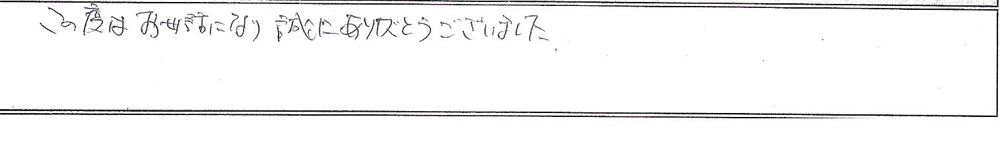 この度はお世話になり誠にありがとうございました